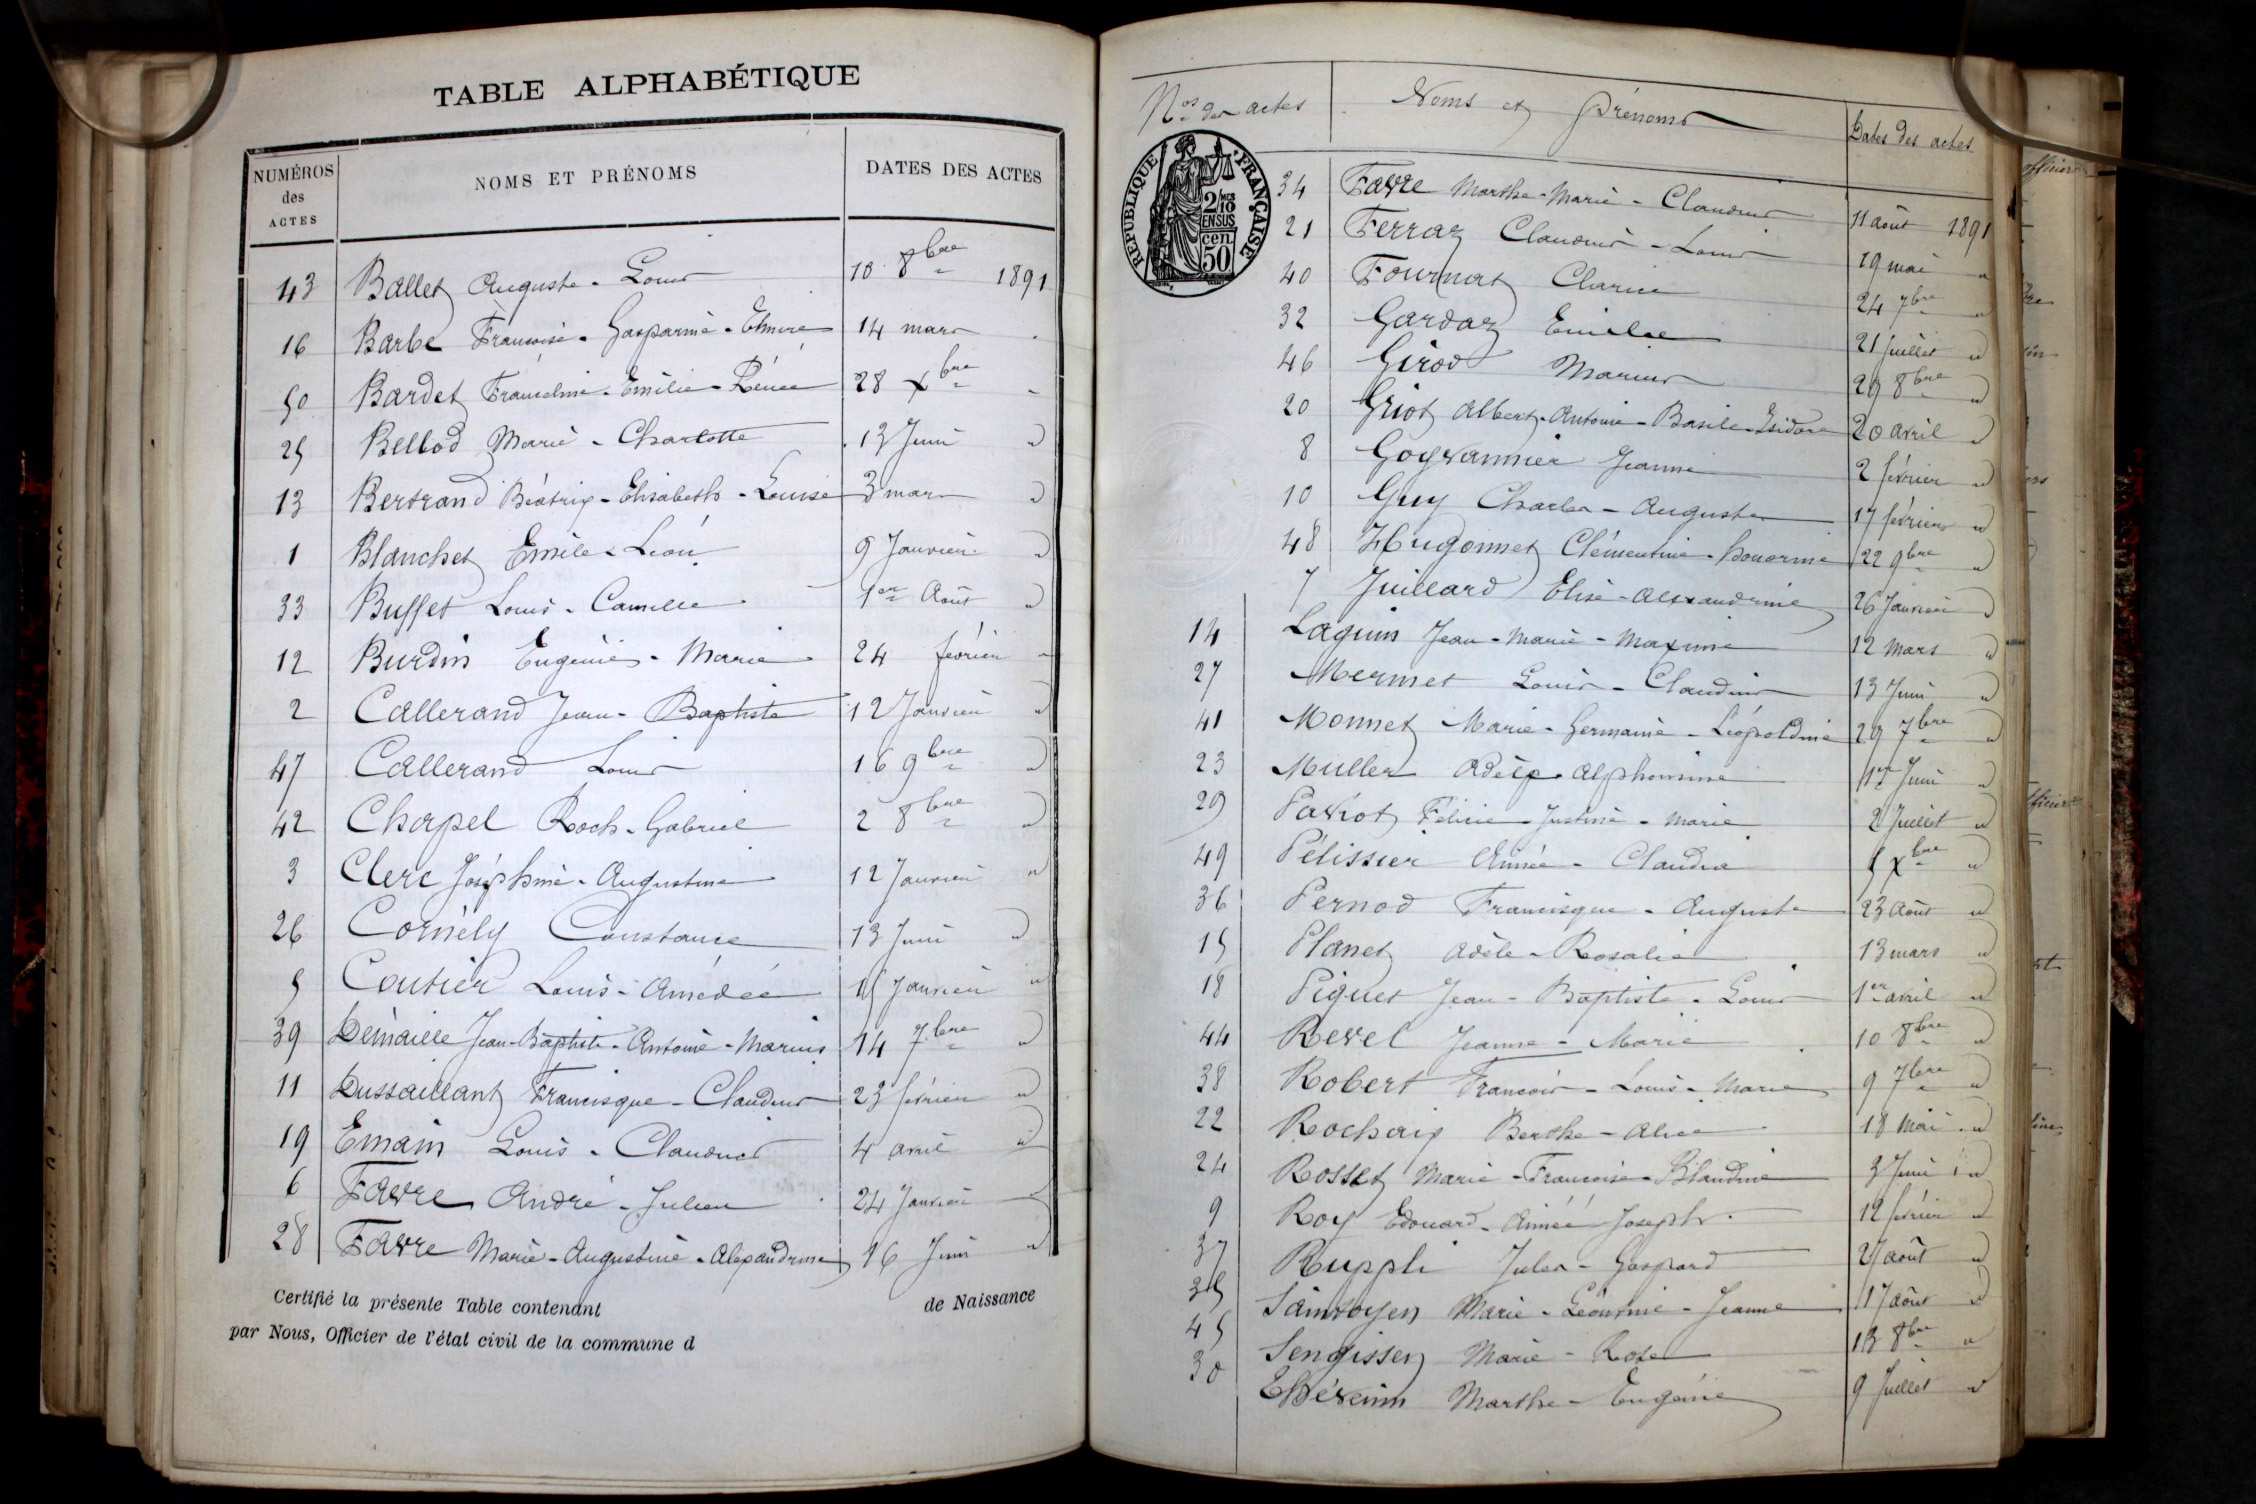 TABLE ALPHABÉTIQUE
NUMÉROS des ACTES NOMS ET PRÉNOMS DATES DES ACTES
43 Ballet Auguste - Louis 10 8bre 1891
16 Barbe Françoise - Gasparine - Elmire 14 mars "
50 Bardet Franceline - Emilie - Rénée 28 Xbre "
25 Bellod Marie - Charlotte 13 Juin "
13 Bertrand Béatrix - Elisabeth - Louise 3 mars "
1 Blanchet Emile - Léon 9 Janvier "
33 Buffet Louis - Camille 1er Août "
12 Burdin Eugénie - Marie 24 février "
2 Callerand Jean - Baptiste 12 Janvier "
47 Callerand Louis 16 9bre "
42 Chapel Roch - Gabriel 2 8bre "
3 Clerc Joséphine - Augustine 12 Janvier "
26 Cornély Constance 13 Juin "
5 Coutier Louis - Amédée 15 Janvier "
39 Demaille Jean - Baptiste - Antoine - Marius 14 7bre "
11 Dussaillant Francisque - Claudius 23 février "
19 Emain Louis - Claudius 4 avril "
6 Favre André - Julien 24 Janvier "
28 Favre Marie - Augustine - Alexandrine 16 Juin "
Certifié la présente Table contenant de Naissance
par Nous, Officier de l'état civil de la commune d
Nos des actes Noms et Prénoms Dates des actes
REPUBLIQUE FRANÇAISE
2/10 MES
EN SUS
50 cen
34 Favre Marthe - Marie - Claudius 11 août 1891
21 Ferraz Claudius - Louis 19 mai "
40 Fournat Clarice 24 7bre "
32 Gardaz Emilie 21 Juillet "
46 Girod Marius 29 8bre "
20 Griot Albert - Antoine - Basile - Isidore 20 avril "
8 Goyvannier Jeanne 2 février "
10 Guy Charles - Auguste 17 février "
48 Hugonnet Clémentine - honorine 22 9bre "
7 Juillard Elise - Alexandrine 26 Janvier "
14 Laguin Jean - Marie - Maxime 12 Mars "
27 Mermet Louis - Claudius 13 Juin "
41 Monnet Marie - Germaine - Léopoldine 29 7bre "
23 Muller Adèle - Alphonsine 1er Juin "
29 Paviot Félicie - Justine - Marie 2 Juillet "
49 Pélissier Aimée - Claudia 5 Xbre "
36 Pernod Francisque - Auguste 23 Août "
15 Planet Adèle - Rosalie 13 mars "
18 Piquet Jean - Baptiste - Louis 1er avril "
44 Revel Jeanne - Marie 10 8bre "
38 Robert François - Louis - Marie 9 7bre "
22 Rochaix Berthe - Alice 18 Mai "
24 Rosset Marie - Françoise - Blandine 3 Juin "
9 Roy Edouard - Aimée Joseph 12 février "
37 Ruppli Jules - Gaspard 27 août "
35 Sainvoyen Marie - Léontine - Jeanne 17 août "
45 Sengissen Marie - Rose 13 8bre "
30 Thévenin Marthe - Eugénie 9 Juillet "